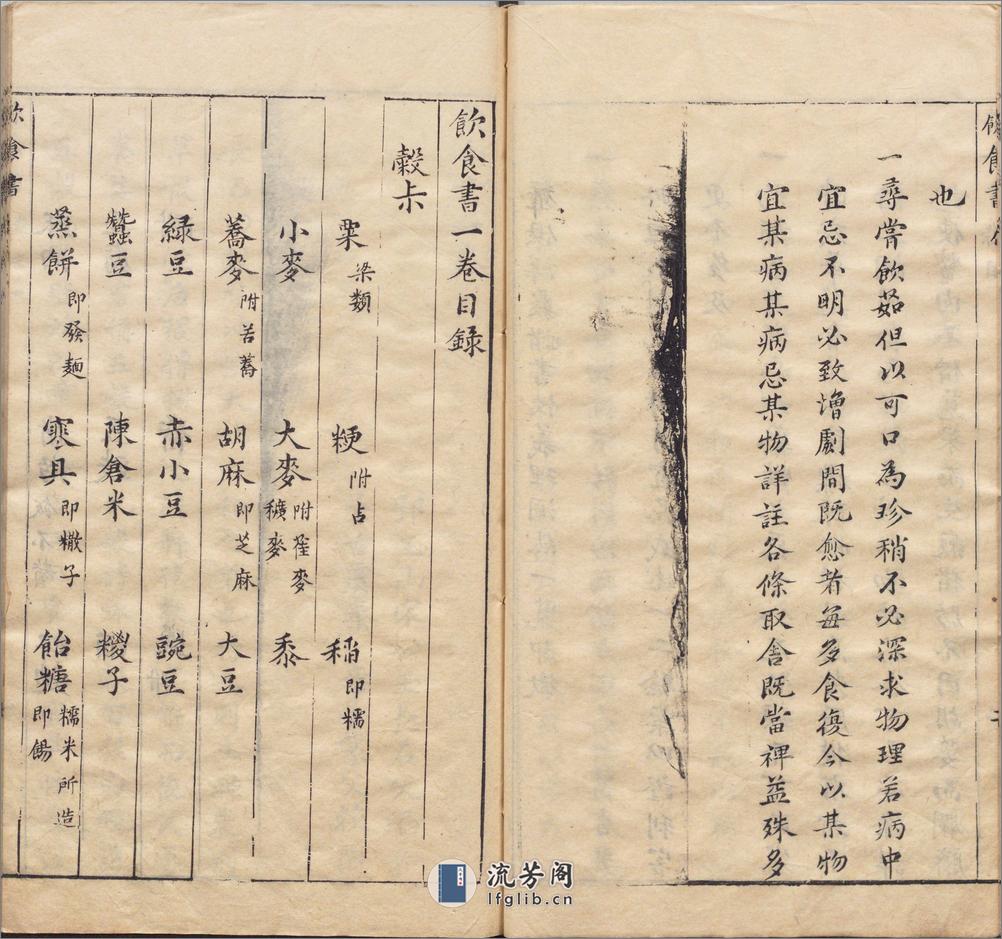 也
一尋嘗飲茹但以可口為珍稍不必深求物理若病中
宜忌不明必致增劇間既愈者每多食復今以某物
宜某病某病忌某物詳註各條取舍既當裨益殊多
飲食書一卷目錄
穀部
粟 梁類 粳 附占 稻 即糯
小麥 大麥 附雀麥 穬麥 黍
蕎麥 附苦蕎 胡麻 即芝麻 大豆
綠豆 赤小豆 豌豆
蠶豆 陳倉米 糉子
蒸餅 即發麵 寒具 即糤子 飴糖 糯米所造 即餳
飲食書
流芳阁
lfglib.cn